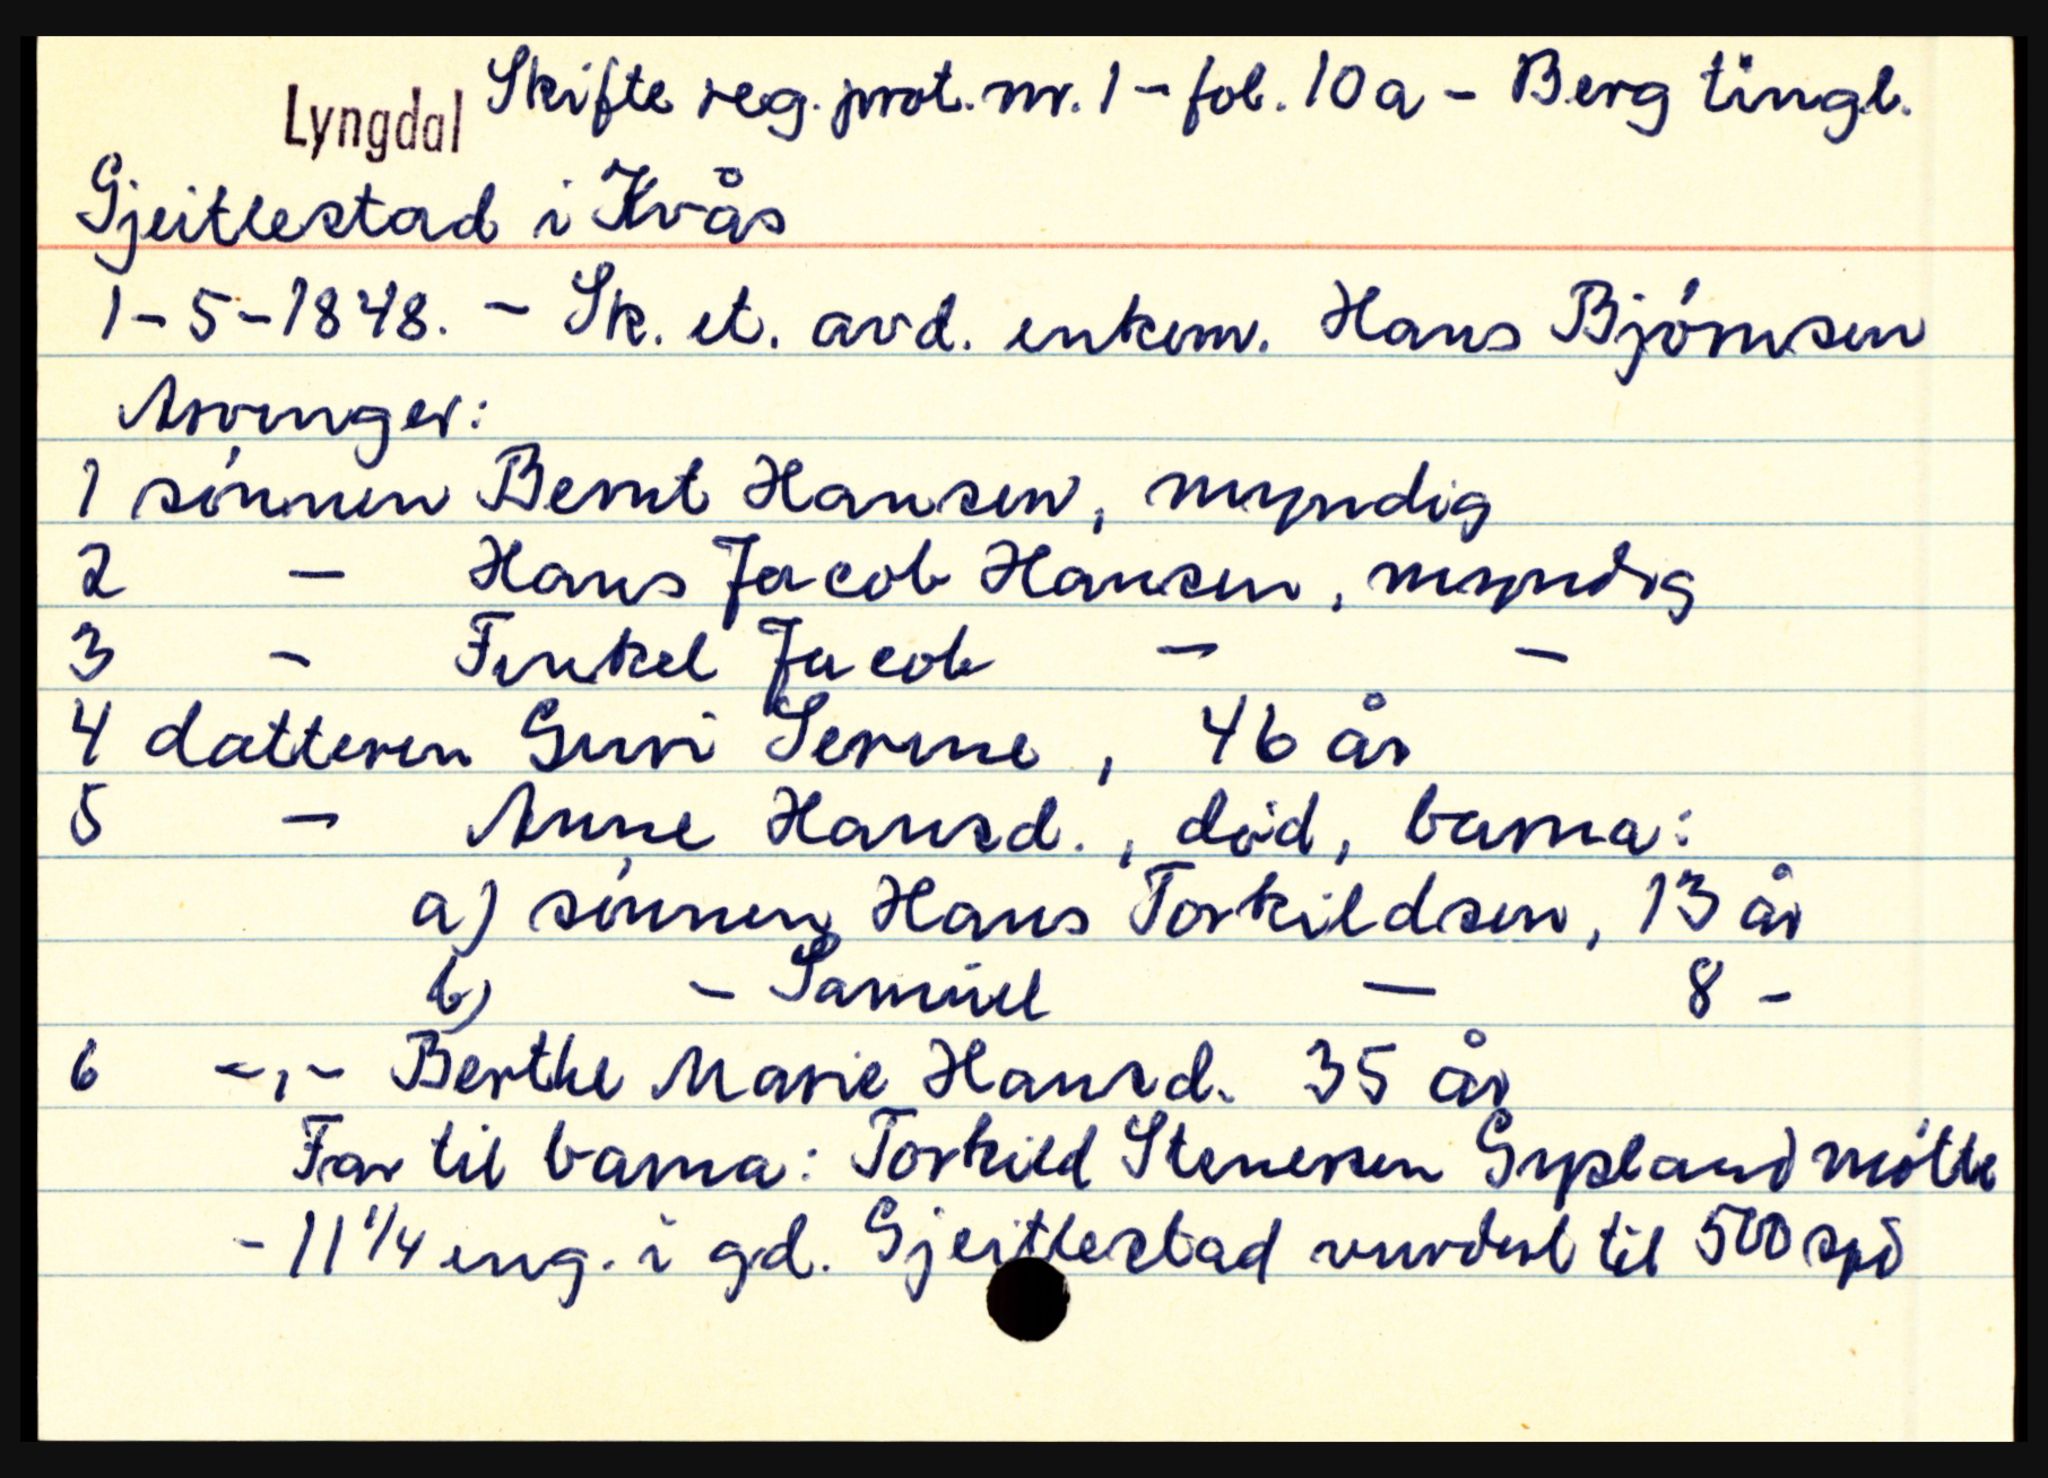 Lyngdal Skifte reg. prot. nr. 1 - fol. 10a - Berg tingl.
Gjeitlestad i Kvås
1-5-1848. - Sk. et. avd. enkem. Hans Bjørnsen
Arvinger:
1 sønnen Bernt Hansen, myndig
2 - Hans Jacob Hansen, myndig
3 - Tinkel Jacob - -
4 datteren Guri Serine, 46 år
5 - Anne Hansd., død, barna:
a) sønnen Hans Torkildsen, 13 år
b) - Samuel - 8 -
6 -,- Berthe Marie Hansd. 35 år
Far til barna: Torkild Stenersen Grysland møtte
- 11 1/4 eng. i gd. Gjeitlestad vurdert til 500 spd